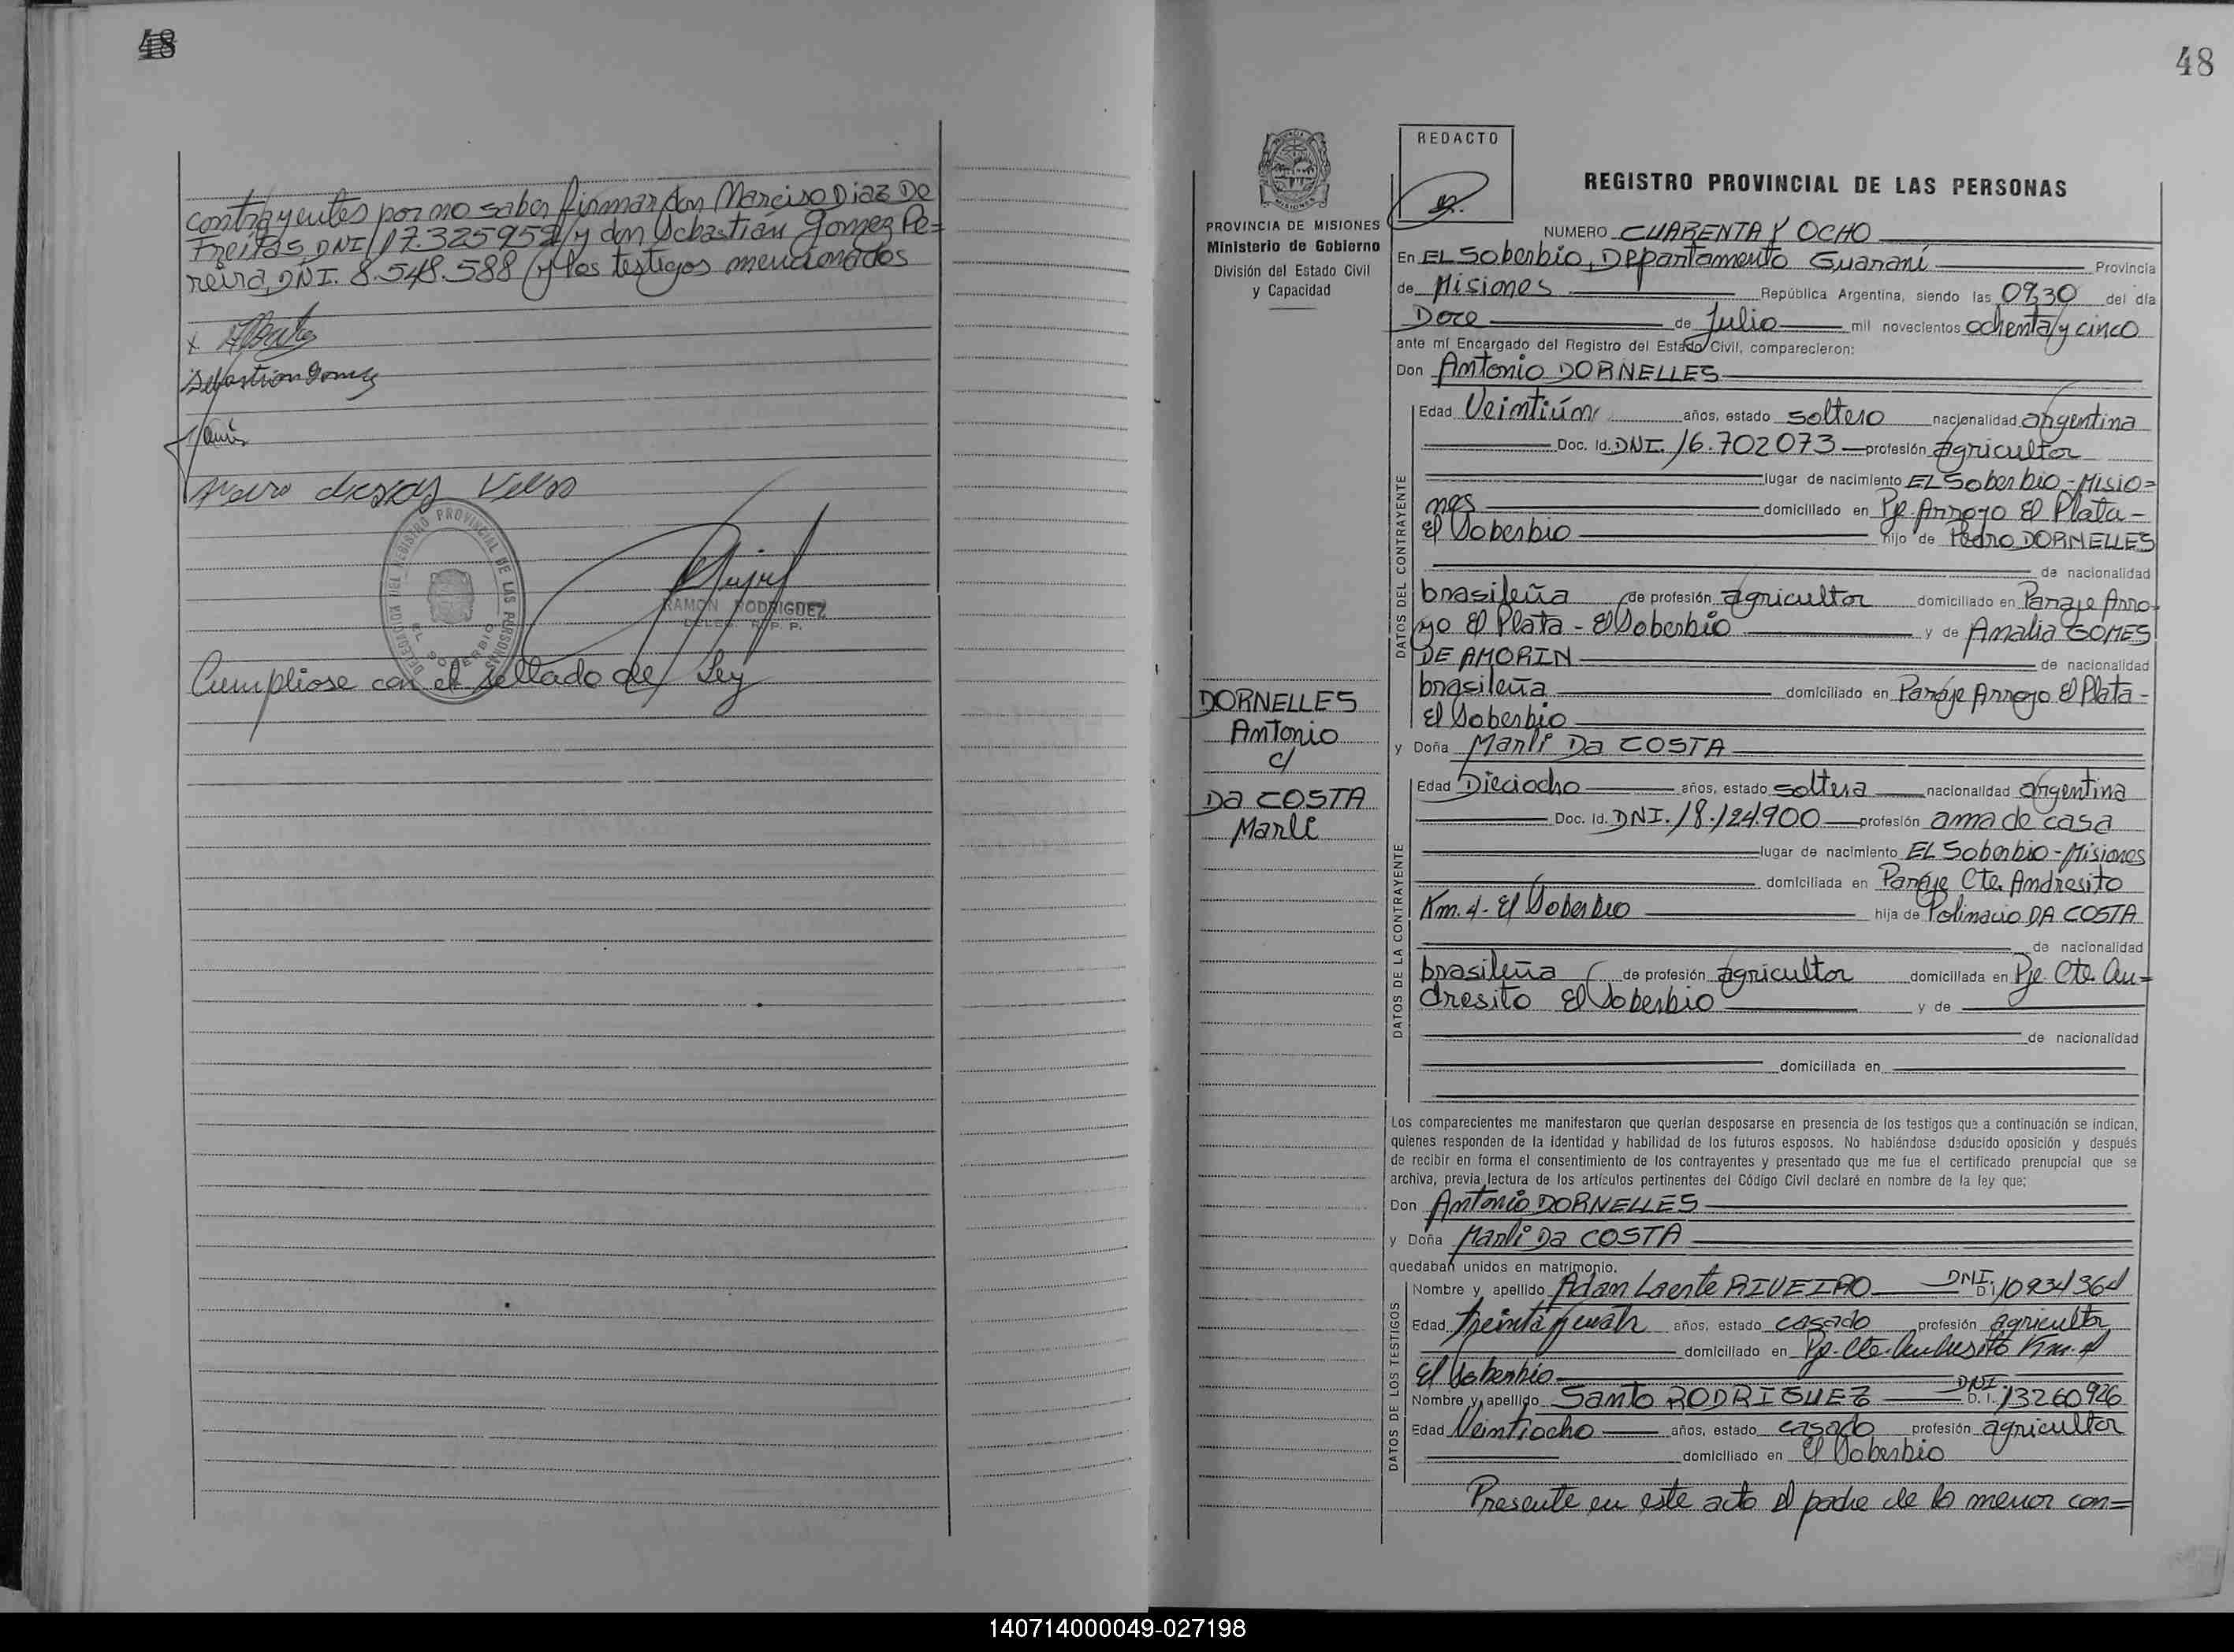 48
contrayentes por no saber firmar don Marciso Diaz De
Freitas, DNI 17.325952 y don Sebastián Gomez Pe=
reira, DNI. 8.548.588 y los testigos mencionados
x
Sebastian Gomez
DELEGACION DEL REGISTRO PROVINCIAL DE LAS PERSONAS
EL SOBERBIO
RAMON RODRIGUEZ
DELEG. R. P. P.
Cumpliose con el sellado de Ley
48
PROVINCIA DE MISIONES
Ministerio de Gobierno
División del Estado Civil
y Capacidad
DORNELLES
Antonio
c/
Da COSTA
Marli
REDACTO
REGISTRO PROVINCIAL DE LAS PERSONAS
NUMERO CUARENTA Y OCHO
En EL Soberbio, Departamento Guaraní Provincia
de Misiones República Argentina, siendo las 09,30 del día
Doce de Julio mil novecientos ochenta y cinco
ante mí Encargado del Registro del Estado Civil, comparecieron:
Don Antonio DORNELLES
DATOS DEL CONTRAYENTE
Edad Veintiún años, estado soltero nacionalidad argentina
Doc. Id. DNI. 16.702073 profesión agricultor
lugar de nacimiento EL Soberbio - Misio=
nes domiciliado en Pje. Arroyo El Plata -
El Soberbio hijo de Pedro DORNELLES
de nacionalidad
brasileña de profesión agricultor domiciliado en Paraje Arro-
yo El Plata - El Soberbio y de Amalia GOMES
DE AMORIN de nacionalidad
brasileña domiciliado en Paraje Arroyo El Plata -
El Soberbio
y Doña Marli Da COSTA
DATOS DE LA CONTRAYENTE
Edad Dieciocho años, estado soltera nacionalidad argentina
Doc. Id. DNI. 18.124.900 profesión ama de casa
lugar de nacimiento EL Soberbio - Misiones
domiciliada en Paraje Cte. Andresito
Km. 4 - El Soberbio hija de Polinacio DA COSTA
de nacionalidad
brasileña de profesión agricultor domiciliada en Pje. Cte. An=
dresito El Soberbio y de
de nacionalidad
domiciliada en
Los comparecientes me manifestaron que querían desposarse en presencia de los testigos que a continuación se indican,
quienes responden de la identidad y habilidad de los futuros esposos. No habiéndose deducido oposición y después
de recibir en forma el consentimiento de los contrayentes y presentado que me fue el certificado prenupcial que se
archiva, previa lectura de los artículos pertinentes del Código Civil declaré en nombre de la ley que:
Don Antonio DORNELLES
y Doña Marli Da COSTA
quedaban unidos en matrimonio.
DATOS DE LOS TESTIGOS
Nombre y apellido Adan Laerte RIVEIRO DNI. D.I.
Edad Treinta y años, estado casado profesión agricultor
domiciliado en Pje. Cte. Andresito Km. 4
El Soberbio
Nombre y apellido Santo RODRIGUEZ DNI D. I. 13260926
Edad Veintiocho años, estado casado profesión agricultor
domiciliado en El Soberbio
Presente en este acto el padre de la menor con=
140714000049-027198